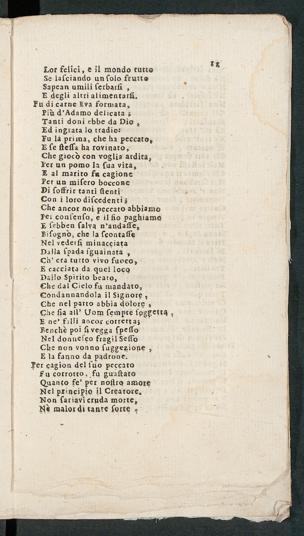 11
Lor felici, e il mondo tutto
Se lasciando un solo frutto
Sapean umili serbarsi,
E degli altri alimentarsi.
Fu di carne Eva formata,
Più d'Adamo delicata;
Tanti doni ebbe da Dio,
Ed ingrata lo tradìo:
Fu la prima, che ha peccato,
E se stessa ha rovinato;
Che giocò con voglia ardita,
Per un pomo la sua vita,
E al marito fu cagione
Per un misero boccone
Di soffrir tanti stenti
Con i loro discedenti;
Che ancor noi peccato abbiamo
Pel consenso, e il fio paghiamo
E sebben salva n'andasse,
Bisognò, che la scontasse
Nel vedersi minacciata
Dalla spada sguainata,
Ch'era tutto vivo fuoco,
E cacciata da quel loco
Dallo Spirito beato,
Che dal Cielo fu mandato,
Condannandola il Signore,
Che nel parto abbia dolore,
Che sia all'Uom sempre soggetta,
E ne' falli ancor corretta;
Benchè poi si vegga spesso
Nel donnesco fragil Sesso
Che non vonno suggezione,
E la fanno da padrone.
Per cagion del suo peccato
Fu corrotto, fu guastato
Quanto fe' per nostro amore
Nel principio il Creatore.
Non sariavi cruda morte,
Nè malor di tante sorte,